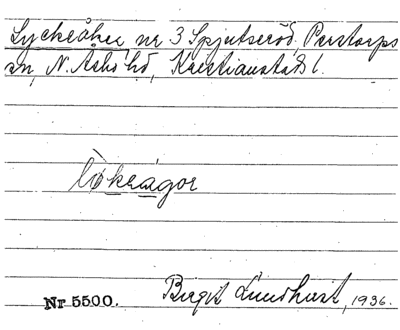 Lyckeåker nr 3 Spjutseröd, Perstorps
sn, N. Åsbo hd, Kristianstads l.
Nr 5500.
Birgit Lundkvist, 1936.